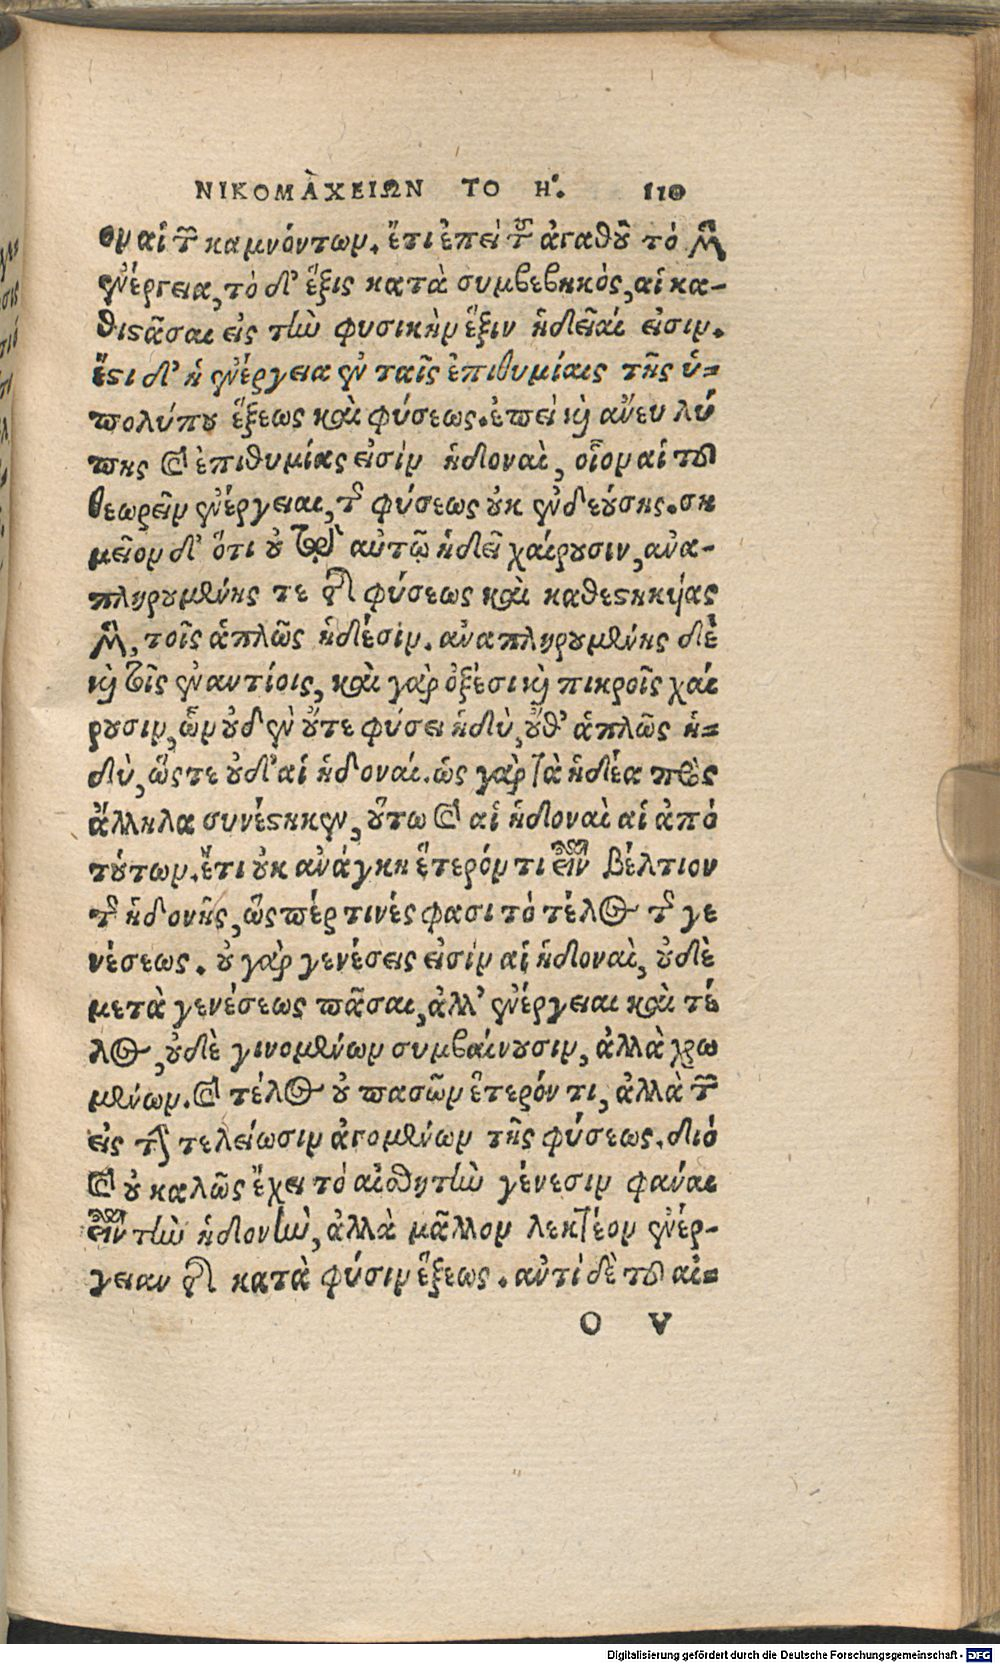 ΝΙΚΟΜΑΧΕΙΩΝ ΤΟ Η. 110
ον αἱ τῶν καμνόντων. ἔτι ἐπεὶ τοῦ ἀγαθοῦ τὸ μὲν
ἐνέργεια, τὸ δ' ἕξις κατὰ συμβεβηκὸς, αἱ κα-
θιστᾶσαι εἰς τὴν φυσικὴν ἕξιν ἡδεῖαί εἰσιν.
ἔστι δ' ἡ ἐνέργεια ἐν ταῖς ἐπιθυμίαις τῆς ὑ-
πολύπου ἕξεως καὶ φύσεως. ἐπεὶ καὶ ἄνευ λύ
πης καὶ ἐπιθυμίας εἰσὶν ἡδοναὶ, οἷον αἱ τοῦ
θεωρεῖν ἐνέργειαι, τῆς φύσεως οὐκ ἐνδεούσης. ση
μεῖον δ' ὅτι οὐ τῷ αὐτῷ ἡδεῖ χαίρουσιν, ἀνα-
πληρουμένης τε τῆς φύσεως καὶ καθεστηκυίας
μὲν, τοῖς ἁπλῶς ἡδέσιν. ἀναπληρουμένης δὲ
καὶ τοῖς ἐναντίοις, καὶ γὰρ ὀξέσι καὶ πικροῖς χαί
ρουσιν, ὧν οὐδὲν οὔτε φύσει ἡδὺ, οὔθ' ἁπλῶς ἡ-
δὺ, ὥστε οὐδ' αἱ ἡδοναί. ὡς γὰρ τὰ ἡδέα πρὸς
ἄλληλα συνέστηκεν, οὕτω καὶ αἱ ἡδοναὶ αἱ ἀπὸ
τούτων. ἔτι οὐκ ἀνάγκη ἕτερόν τι εἶναι βέλτιον
τῆς ἡδονῆς, ὥσπέρ τινές φασι τὸ τέλος τῆς γε
νέσεως. οὐ γὰρ γενέσεις εἰσὶν αἱ ἡδοναὶ, οὐδὲ
μετὰ γενέσεως πᾶσαι, ἀλλ' ἐνέργειαι καὶ τέ
λος, οὐδὲ γινομένων συμβαίνουσιν, ἀλλὰ χρω
μένων. καὶ τέλος οὐ πασῶν ἕτερόν τι, ἀλλὰ τῶν
εἰς τὴν τελείωσιν ἀγομένων τῆς φύσεως. διὸ
καὶ οὐ καλῶς ἔχει τὸ αἰσθητὴν γένεσιν φάναι
εἶναι τὴν ἡδονὴν, ἀλλὰ μᾶλλον λεκτέον ἐνέρ-
γειαν τῆς κατὰ φύσιν ἕξεως. ἀντὶ δὲ τοῦ αἰ-
O V
Digitalisierung gefördert durch die Deutsche Forschungsgemeinschaft - DFG